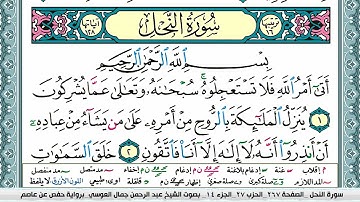 سُورَةُ النَّحْلِ
بِسْمِ اللَّهِ الرَّحْمَٰنِ الرَّحِيمِ
أَتَىٰ أَمْرُ اللَّهِ فَلَا تَسْتَعْجِلُوهُ سُبْحَانَهُ وَتَعَالَىٰ عَمَّا يُشْرِكُونَ
١ يُنَزِّلُ الْمَلَائِكَةَ بِالرُّوحِ مِنْ أَمْرِهِ عَلَىٰ مَن يَشَاءُ مِنْ عِبَادِهِ
أَنْ أَنذِرُوا أَنَّهُ لَا إِلَٰهَ إِلَّا أَنَا فَاتَّقُونِ ٢ خَلَقَ السَّمَاوَاتِ
سورة النحل الصفحة ٢٦٧ الحزب ٢٧ الجزء ١٤ بصوت الشيخ عبد الرحمن جمال العوسي برواية حفص عن عاصم